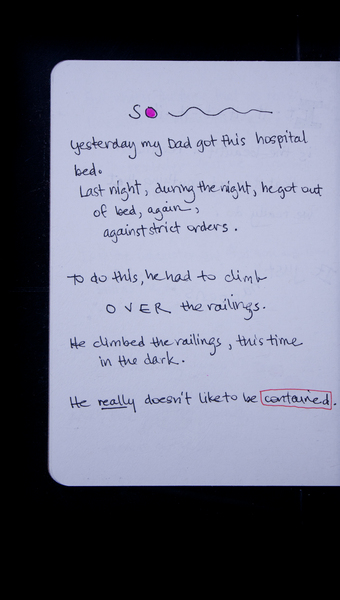 So
yesterday my Dad got this hospital
bed.
Last night, during the night, he got out
of bed, again,
against strict orders.
to do this, he had to climb
OVER the railings.
He climbed the railings, this time
in the dark.
He really doesn't like to be contained.